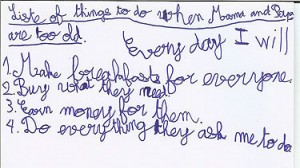 Liste of things to do when Mama and Papa
are too old.
Every day I will
1. Make breakfasts for everyone.
2. Buy what they need
3. Earn money for them.
4. Do everything they ask me to do